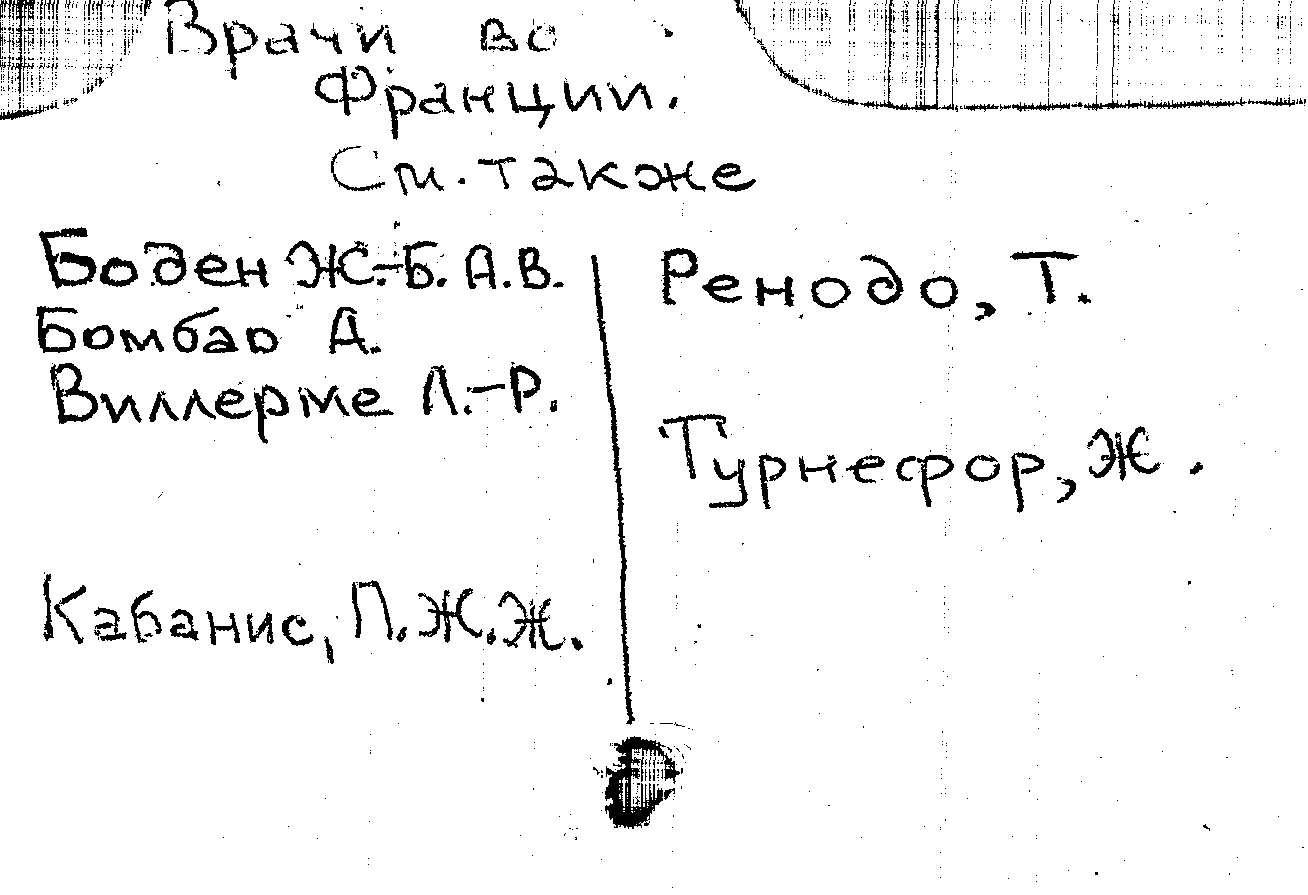 Врачи во
Франции.
См. также
Боден Ж.-Б. А.В.
Бомбар А.
Виллерме Л.-Р.
Кабанис, П.Ж.Ж.
Ренодо, Т.
Турнефор, Ж.